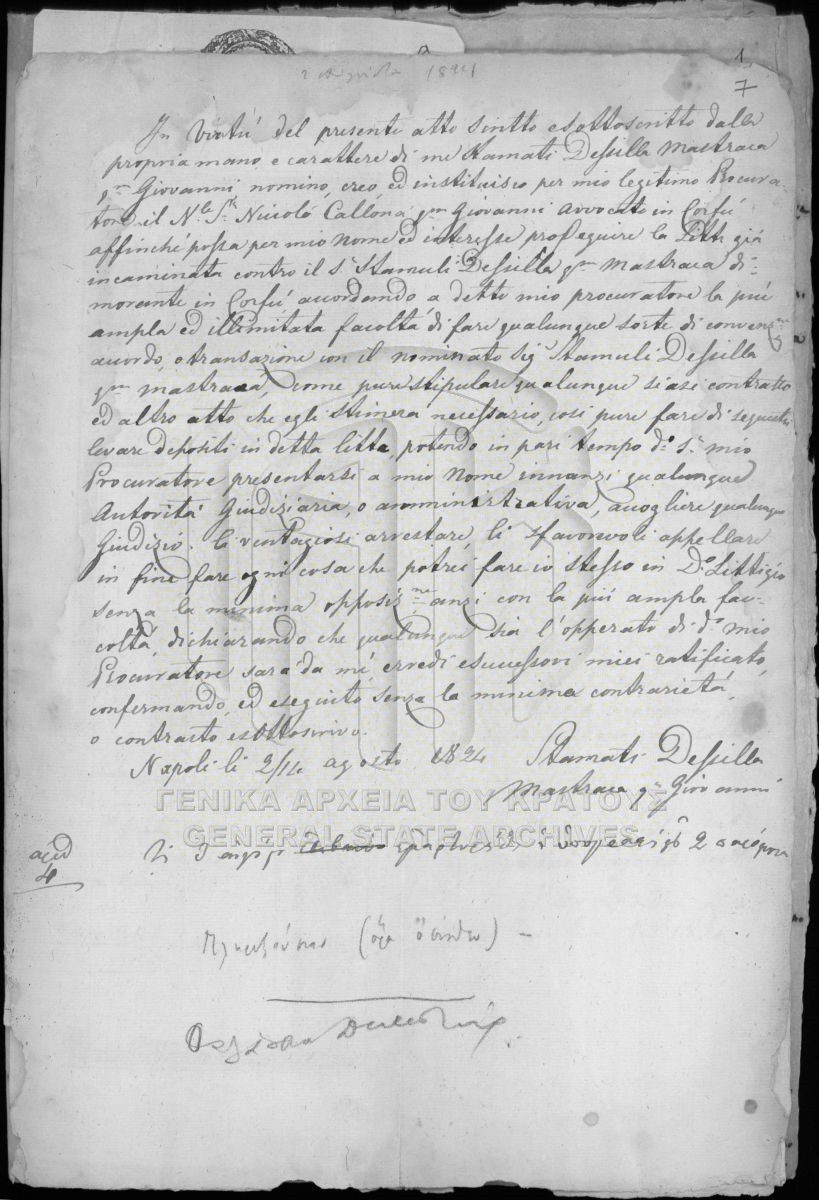 1
7
1824
In Virtú del presente atto scritto e sottoscritto dalla
propria mano e carattere di me Stamati Dessilla Mastraca
qm Giovanni nomino, creo, ed instituisco per mio legitimo Procura-
tore il Nle Sr Niccoló Callona qm Giovanni Avvocato in Corfú
affinché possa per mio Nome ed interesse proseguire la Litte giá
incaminata contro il Sr Stamuli Dessilla qm Mastraca di-
morante in Corfú accordando a detto mio procuratore la piú
ampla ed illimitata facoltá di fare qualunque sorte di convenzne
accordo, e transazione con il nominato Sigr Stamuli Dessilla
qm Mastraca, come pure stipulare qualunque siasi contratto
ed altro atto che egli stimera necessario, cosi pure fare di sequestri
levare depositi in detta litte, potendo in pari tempo do Sr mio
Procuratore presentarsi a mio Nome innanzi qualunque
Autoritá Giudiziaria, o amministrativa, accogliere qualunque
Giudizio. li ventagiosi arrestare, li sfavorevoli appellare
in fine fare ogni cosa che potrei fare io stesso in Do Littigio
senza la minima opposizne anzi con la piú ampla fac-
coltá, dichiarando che qualunque sia l'opperato di do mio
Procuratore sará da mé, erredi e successori miei ratificato,
confermando, ed eseguito senza la minima contrarietá,
o contrasto e sottoscrivo.
Napoli li 2/14 agosto 1824 Stamati Dessilla
Mastraca qm Giovanni
ΓΕΝΙΚΑ ΑΡΧΕΙΑ ΤΟΥ ΚΡΑΤΟΥΣ
GENERAL STATE ARCHIVES